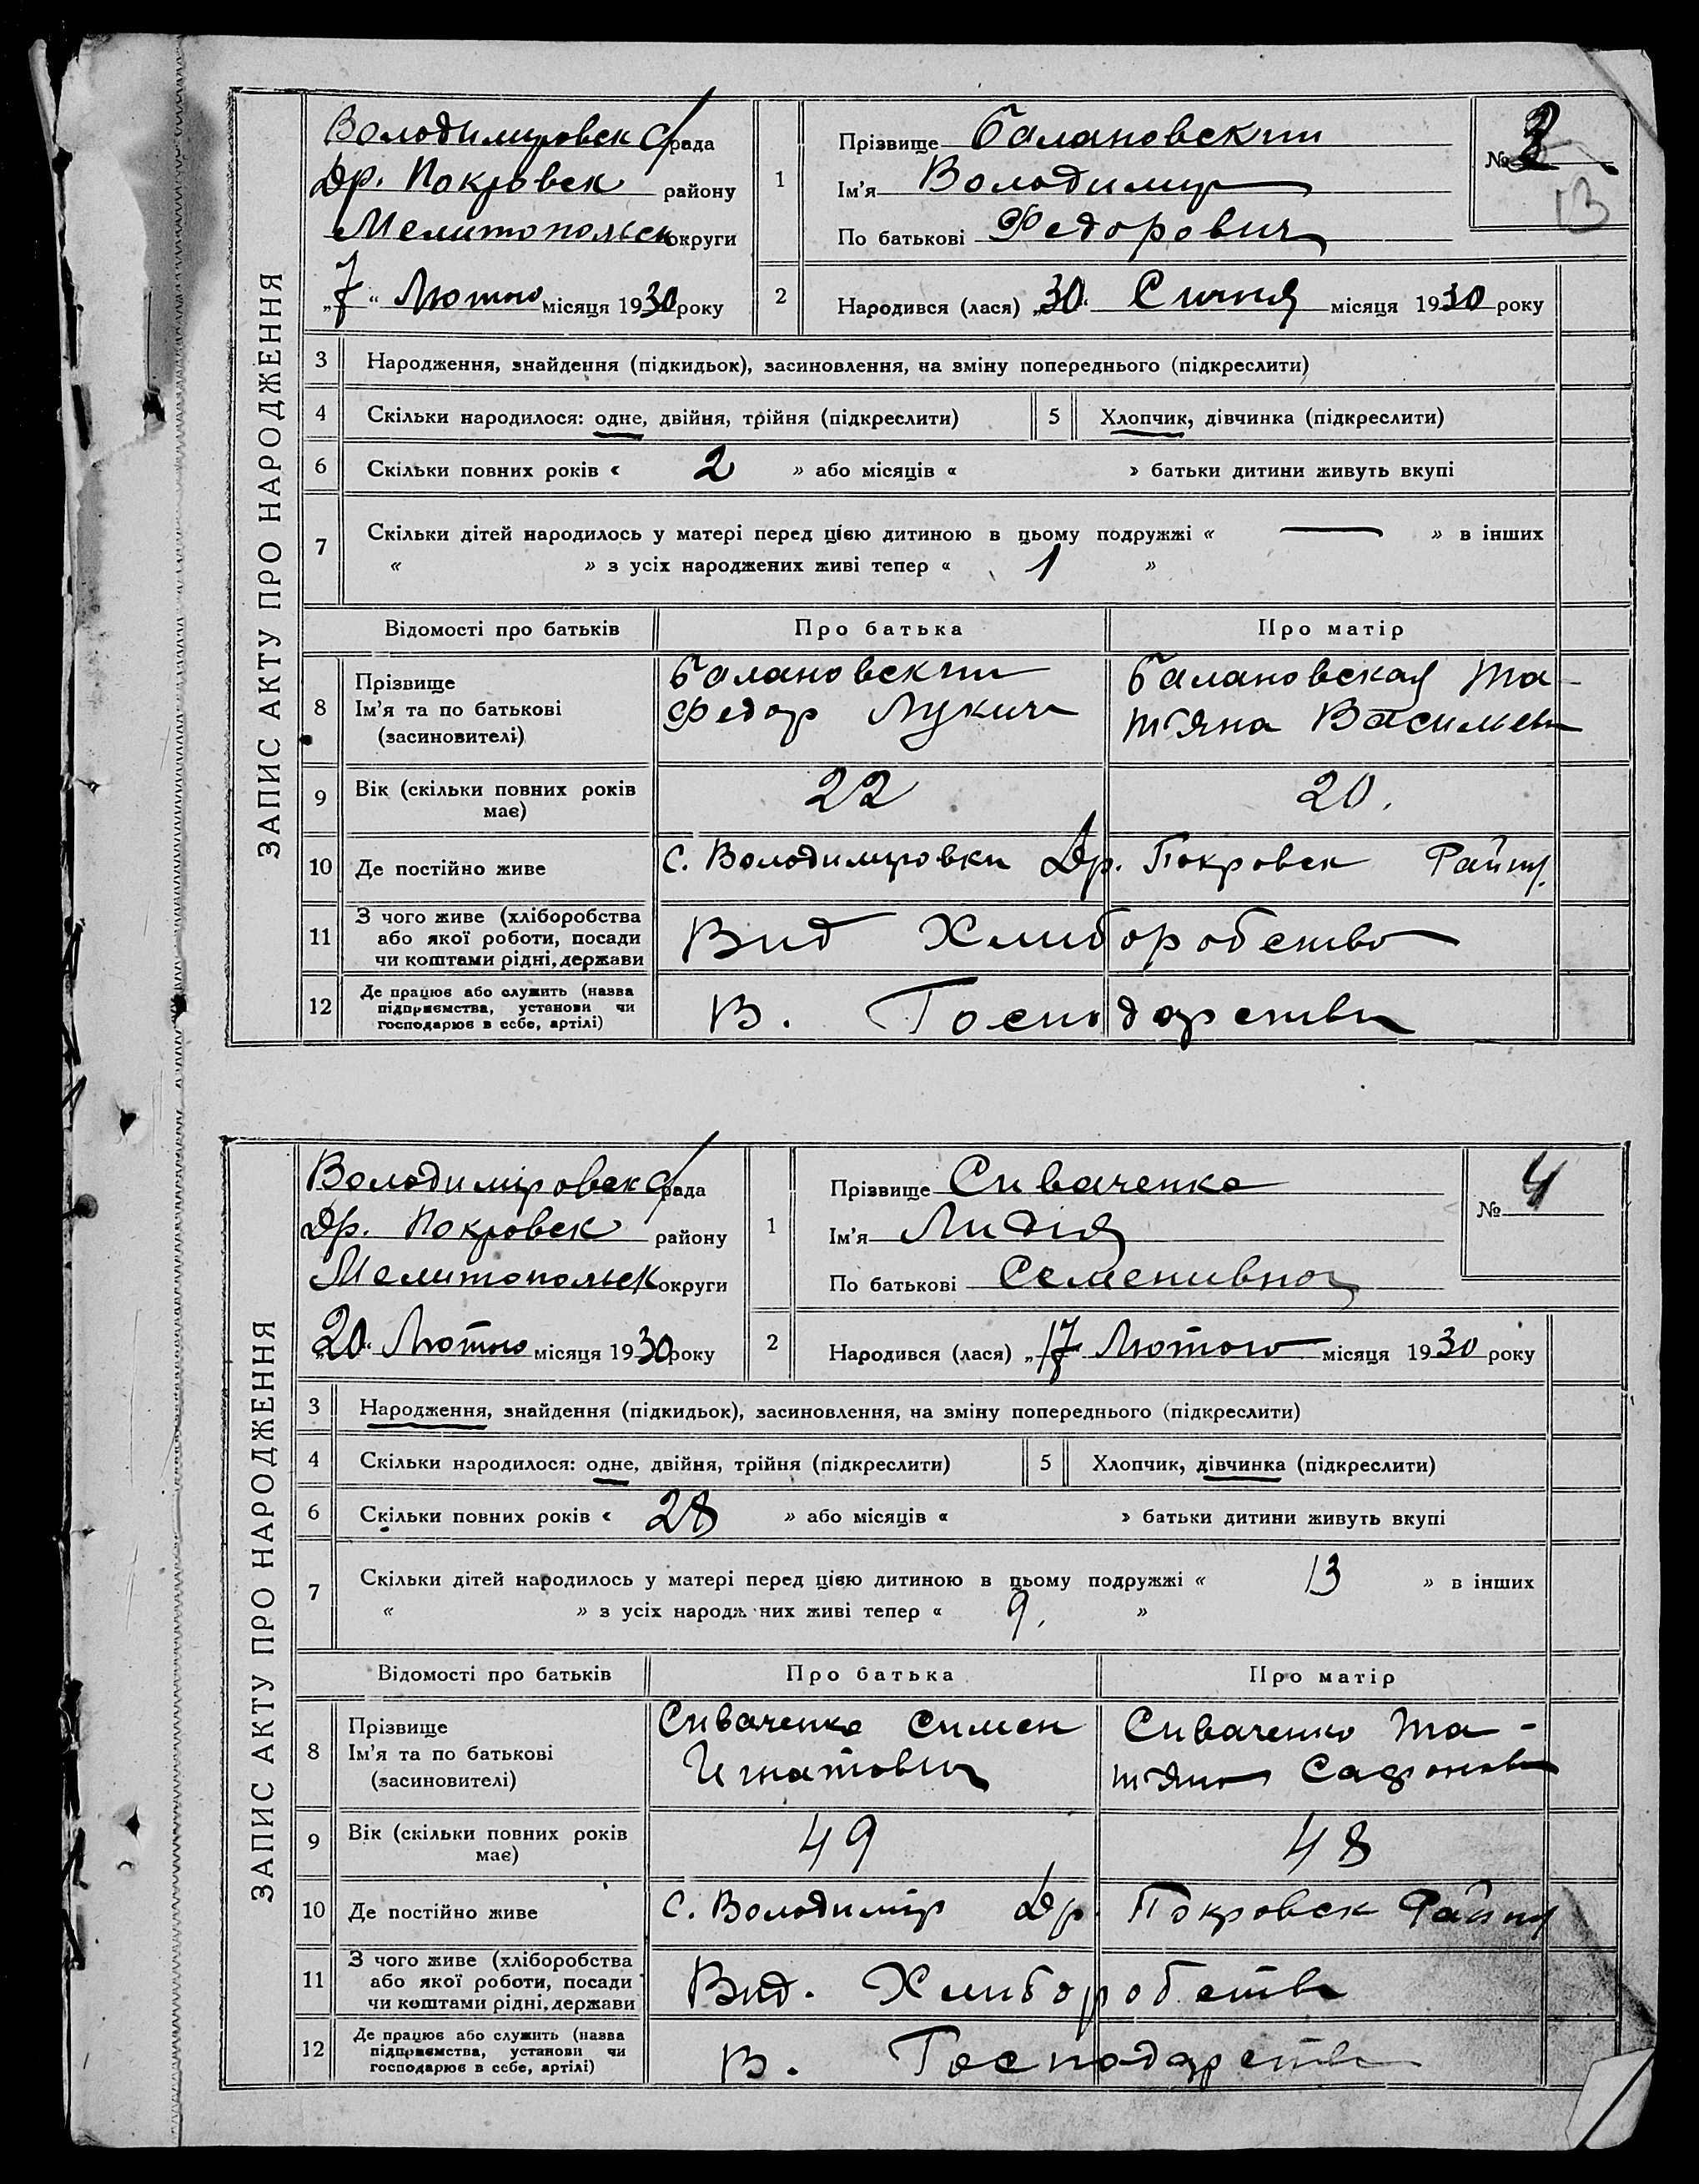 ЗАПИС АКТУ ПРО НАРОДЖЕННЯ
Володимировск с/рада
Др. Покровск району
Мелитопольск округи
„7“ Лютого місяця 1930 року
1
Прізвище Балановский
Ім'я Володимир
По батькові Федорович
№ 3
13
2
Народився (лася) „30“ Сичня місяця 1930 року
3 Народження, знайдення (підкидьок), засиновлення, на зміну попереднього (підкреслити)
4 Скільки народилося: одне, двійня, трійня (підкреслити) 5 Хлопчик, дівчинка (підкреслити)
6 Скільки повних років « 2 » або місяців « » батьки дитини живуть вкупі
7 Скільки дітей народилось у матері перед цією дитиною в цьому подружжі « — » в інших
« » з усіх народжених живі тепер « 1 »
Відомості про батьків Про батька Про матір
8 Прізвище
Ім'я та по батькові
(засиновителі)
Балановский
Федор Лукич
Балановская Та-
т'яна Васильев
9 Вік (скільки повних років
має)
22 20.
10 Де постійно живе с. Володимировки Др. Покровск Райну.
11 З чого живе (хліборобства
або якої роботи, посади
чи коштами рідні, держави
Вид Хлиборобство
12 Де працює або служить (назва
підприємства, установи чи
господарює в себе, артілі)
В. Господарстви
ЗАПИС АКТУ ПРО НАРОДЖЕННЯ
Володиміровск с/рада
Др. Покровск району
Мелитопольск округи
„20“ Лютого місяця 1930 року
1
Прізвище Сиваченко
Ім'я Лидія
По батькові Семенивна
№ 4
2
Народився (лася) „17 Лютого місяця 1930 року
3 Народження, знайдення (підкидьок), засиновлення, на зміну попереднього (підкреслити)
4 Скільки народилося: одне, двійня, трійня (підкреслити) 5 Хлопчик, дівчинка (підкреслити)
6 Скільки повних років « 28 » або місяців « » батьки дитини живуть вкупі
7 Скільки дітей народилось у матері перед цією дитиною в цьому подружжі « 13 » в інших
« » з усіх народж них живі тепер « 9. »
Відомості про батьків Про батька Про матір
8 Прізвище
Ім'я та по батькові
(засиновителі)
Сиваченко Симен
Игнатович
Сиваченко Та-
т'яна Сафонов
9 Вік (скільки повних років
має)
49 48
10 Де постійно живе с. Володимір Др. Покровск Райну
11 З чого живе (хліборобства
або якої роботи, посади
чи коштами рідні, держави
Вид. Хлиборобств
12 Де працює або служить (назва
підприємства, установи чи
господарює в себе, артілі)
В. Господарств